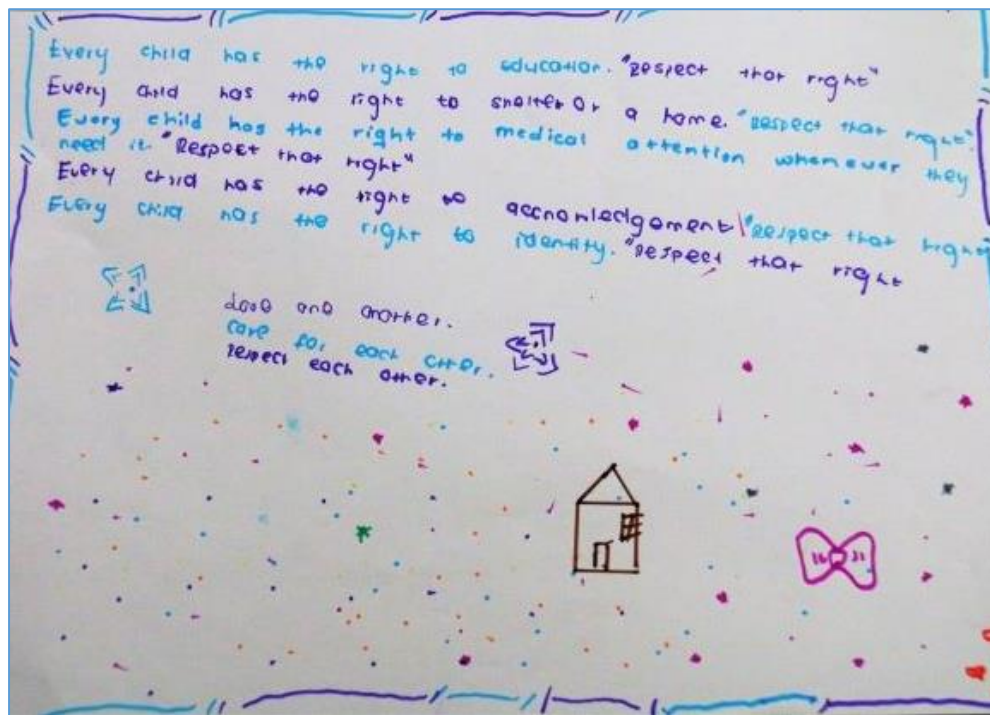 Every child has the right to education. "Respect that right"
Every child has the right to shelter or a home. "Respect that right".
Every child has the right to medical attention whenever they
need it. "Respect that right"
Every child has the right to acknowledgement "Respect that right"
Every child has the right to identity. "Respect that right
Love one another.
care for each other.
respect each other.